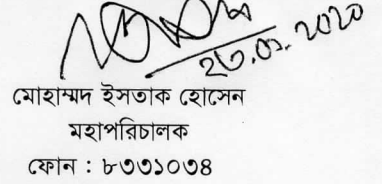 ২৩.০১.২০২০
মোহাম্মদ ইসতাক হোসেন
মহাপরিচালক
ফোন : ৮৩৩১০৩৪